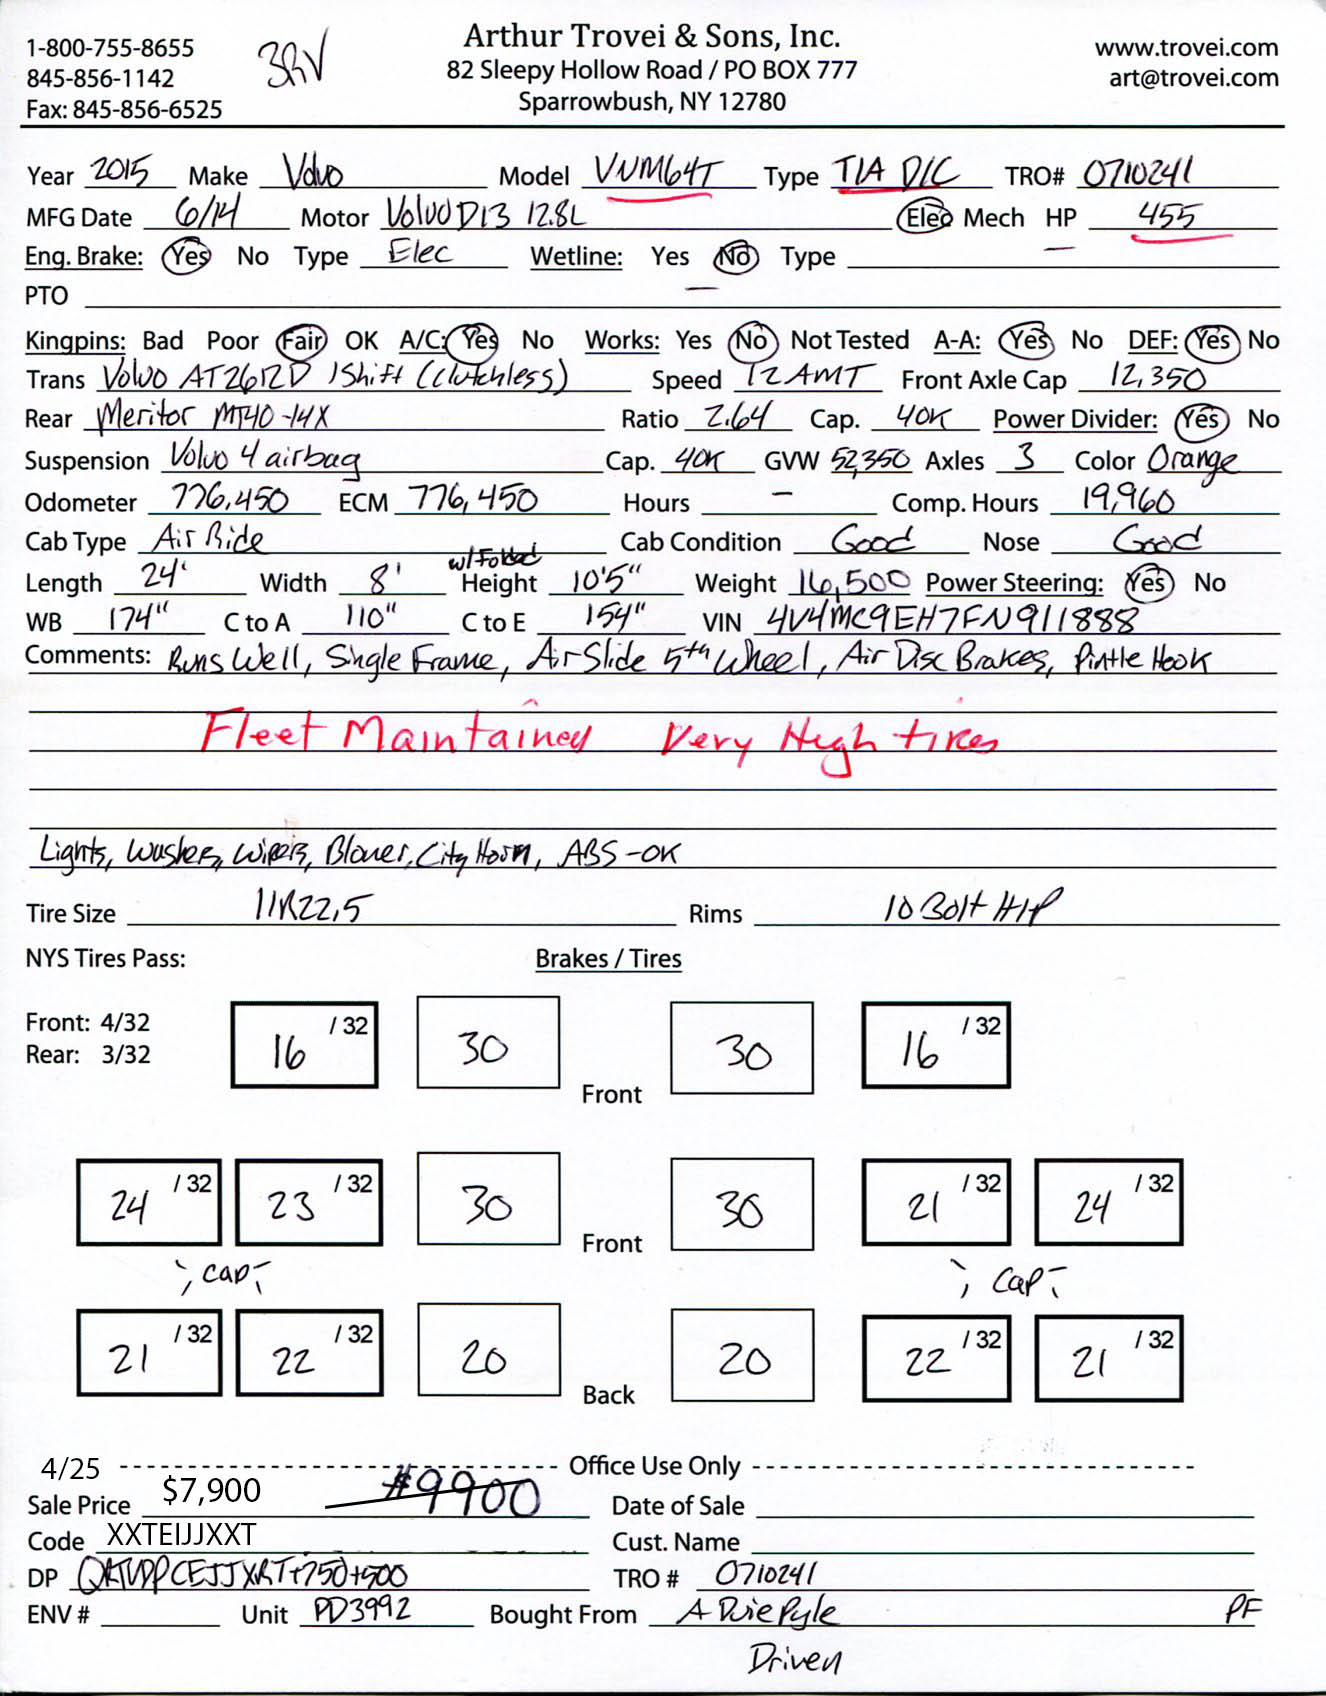 1-800-755-8655
845-856-1142
Fax: 845-856-6525
Arthur Trovei & Sons, Inc.
82 Sleepy Hollow Road / PO BOX 777
Sparrowbush, NY 12780
www.trovei.com
art@trovei.com
Year 2015 Make Volvo Model VNM64T Type T/A D/C TRO# 0710241
MFG Date 6/14 Motor Volvo D13 12.8L Elec Mech HP 455
Eng. Brake: Yes No Type Elec Wetline: Yes No Type
PTO
Kingpins: Bad Poor Fair OK A/C: Yes No Works: Yes No Not Tested A-A: Yes No DEF: Yes No
Trans Volvo AT2612D IShift (Clutchless) Speed 12 AMT Front Axle Cap 12,350
Rear Meritor MT40-14X Ratio 2.64 Cap. 40K Power Divider: Yes No
Suspension Volvo 4 airbag Cap. 40K GVW 52,350 Axles 3 Color Orange
Odometer 776,450 ECM 776,450 Hours – Comp. Hours 19,960
Cab Type Air Ride Cab Condition Good Nose Good
w/Folded
Length 24' Width 8' Height 10'5" Weight 16,500 Power Steering: Yes No
WB 174" C to A 110" C to E 154" VIN 4V4MC9EH7FN911888
Comments: Runs Well, Single Frame, Air Slide 5th Wheel, Air Disc Brakes, Pintle Hook
Fleet Maintained Very High tires
Lights, Washers, Wipers, Blower, City Horn, ABS-OK
Tire Size 11R22.5 Rims 10 Bolt H/P
NYS Tires Pass: Brakes / Tires
Front: 4/32
Rear: 3/32
16 /32 30 30 16 /32
Front
24 /32 23 /32 30 30 21 /32 24 /32
Front
cap cap
21 /32 22 /32 20 20 22 /32 21 /32
Back
4/25 Office Use Only
Sale Price $7,900 $9900 Date of Sale
Code XXTEIJJXXT Cust. Name
DP +750+500 TRO # 0710241
ENV # Unit PD3992 Bought From A Duie Pyle PF
Driven